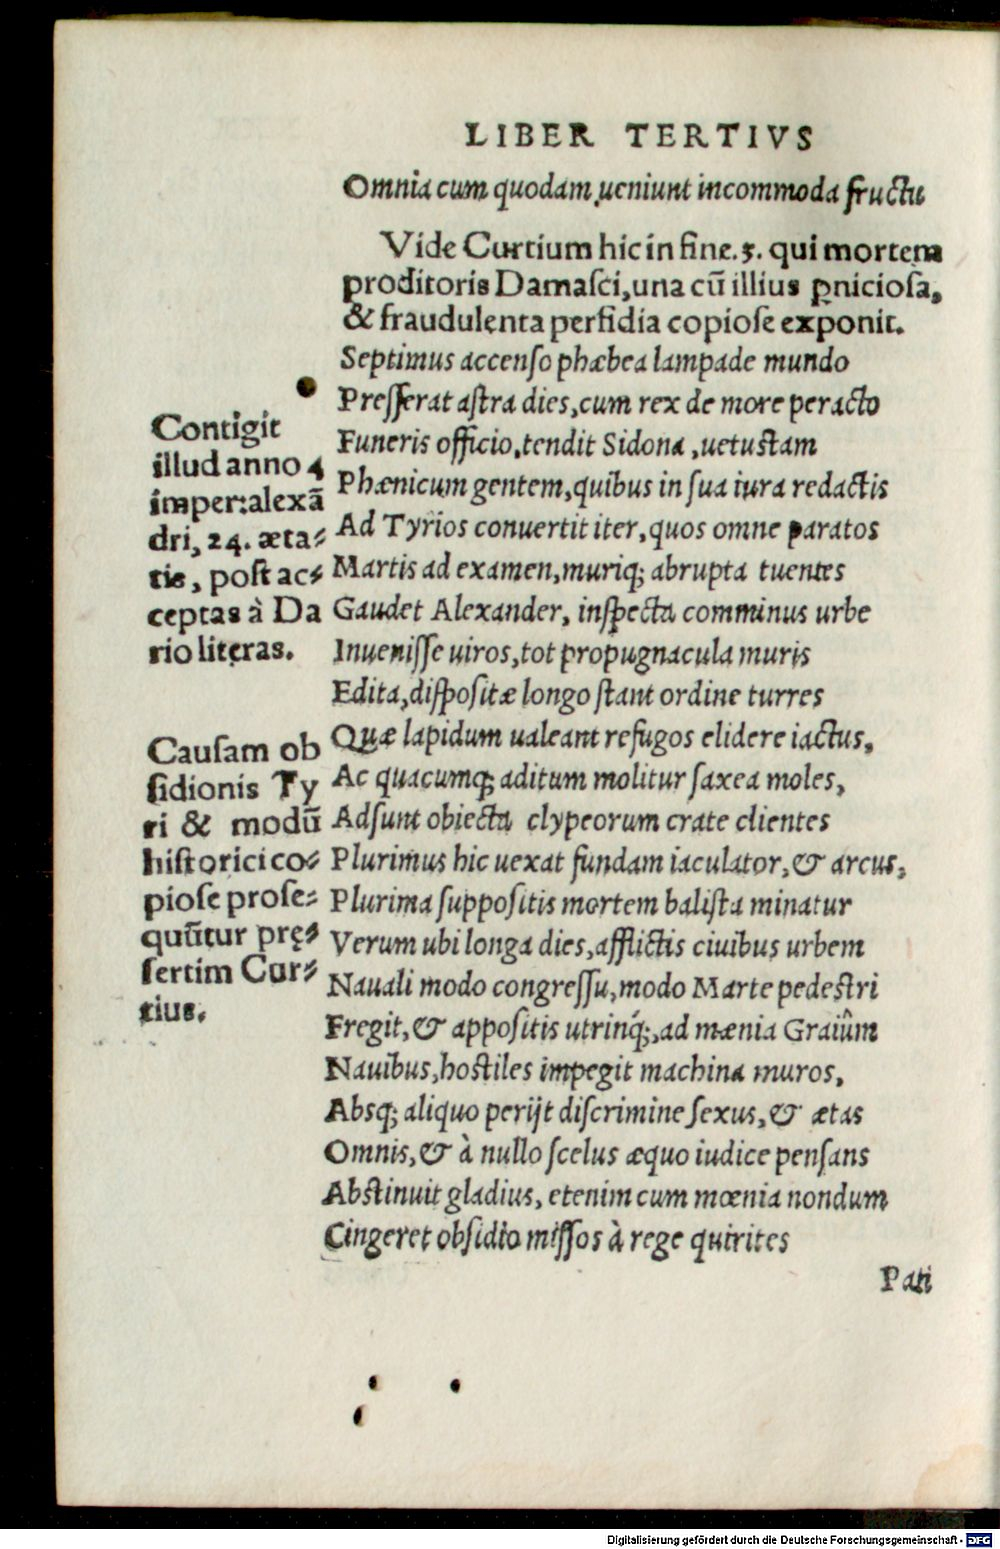 LIBER TERTIVS
Omnia cum quodam ueniunt incommoda fructu
Vide Curtium hic in fine. 5. qui mortem
proditoris Damaſci, una cū illius ꝑnicioſa,
& fraudulenta perfidia copioſe exponit.
Septimus accenſo phæbea lampade mundo
Preſſerat aſtra dies, cum rex de more peracto
Funeris officio, tendit Sidona, uetuſtam
Phænicum gentem, quibus in ſua iura redactis
Ad Tyrios conuertit iter, quos omne paratos
Martis ad examen, muriq; abrupta tuentes
Gaudet Alexander, inſpecta comminus urbe
Inueniſſe uiros, tot propugnacula muris
Edita, diſpoſitæ longo ſtant ordine turres
Quæ lapidum ualeant refugos elidere iactus,
Ac quacumq; aditum molitur ſaxea moles,
Adſunt obiecta clypeorum crate clientes
Plurimus hic uexat fundam iaculator, & arcus,
Plurima ſuppoſitis mortem baliſta minatur
Verum ubi longa dies, afflictis ciuibus urbem
Nauali modo congreſſu, modo Marte pedeſtri
Fregit, & appoſitis utrinq́;, ad mænia Graiûm
Nauibus, hoſtiles impegit machina muros,
Absq; aliquo perijt diſcrimine ſexus, & ætas
Omnis, & à nullo ſcelus æquo iudice penſans
Abſtinuit gladius, etenim cum mœnia nondum
Cingeret obſidio miſſos à rege quirites
Pati
Contigit
illud anno 4
imper: alexā
dri, 24. æta⸗
tis, poſt ac⸗
ceptas à Da
rio literas.
Cauſam ob
ſidionis Ty
ri & modū
hiſtorici co⸗
pioſe proſe⸗
quūtur pręſ⸗
ſertim Cur⸗
tius.
Digitalisierung gefördert durch die Deutsche Forschungsgemeinschaft - DFG